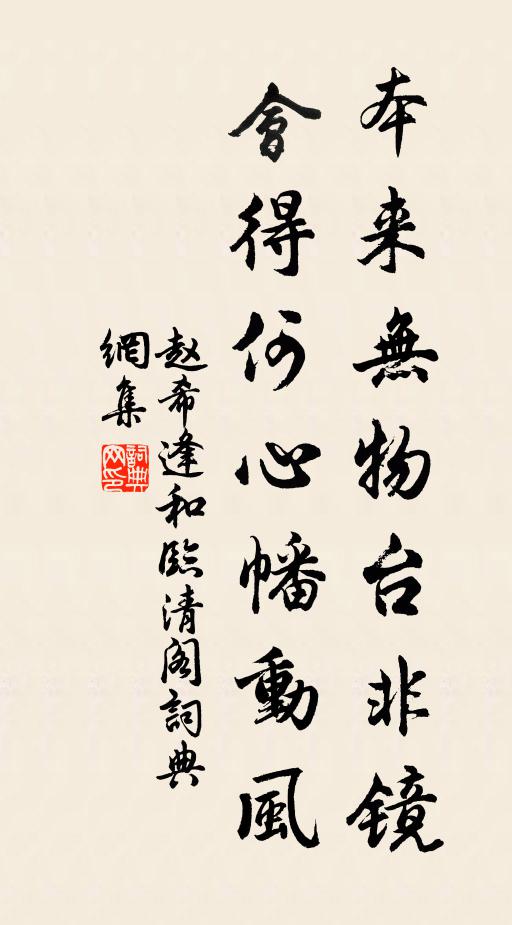 本来無物台非镜
會得何心幡動風
赵希逢和臨清阁詞典
網集
詞典
网印